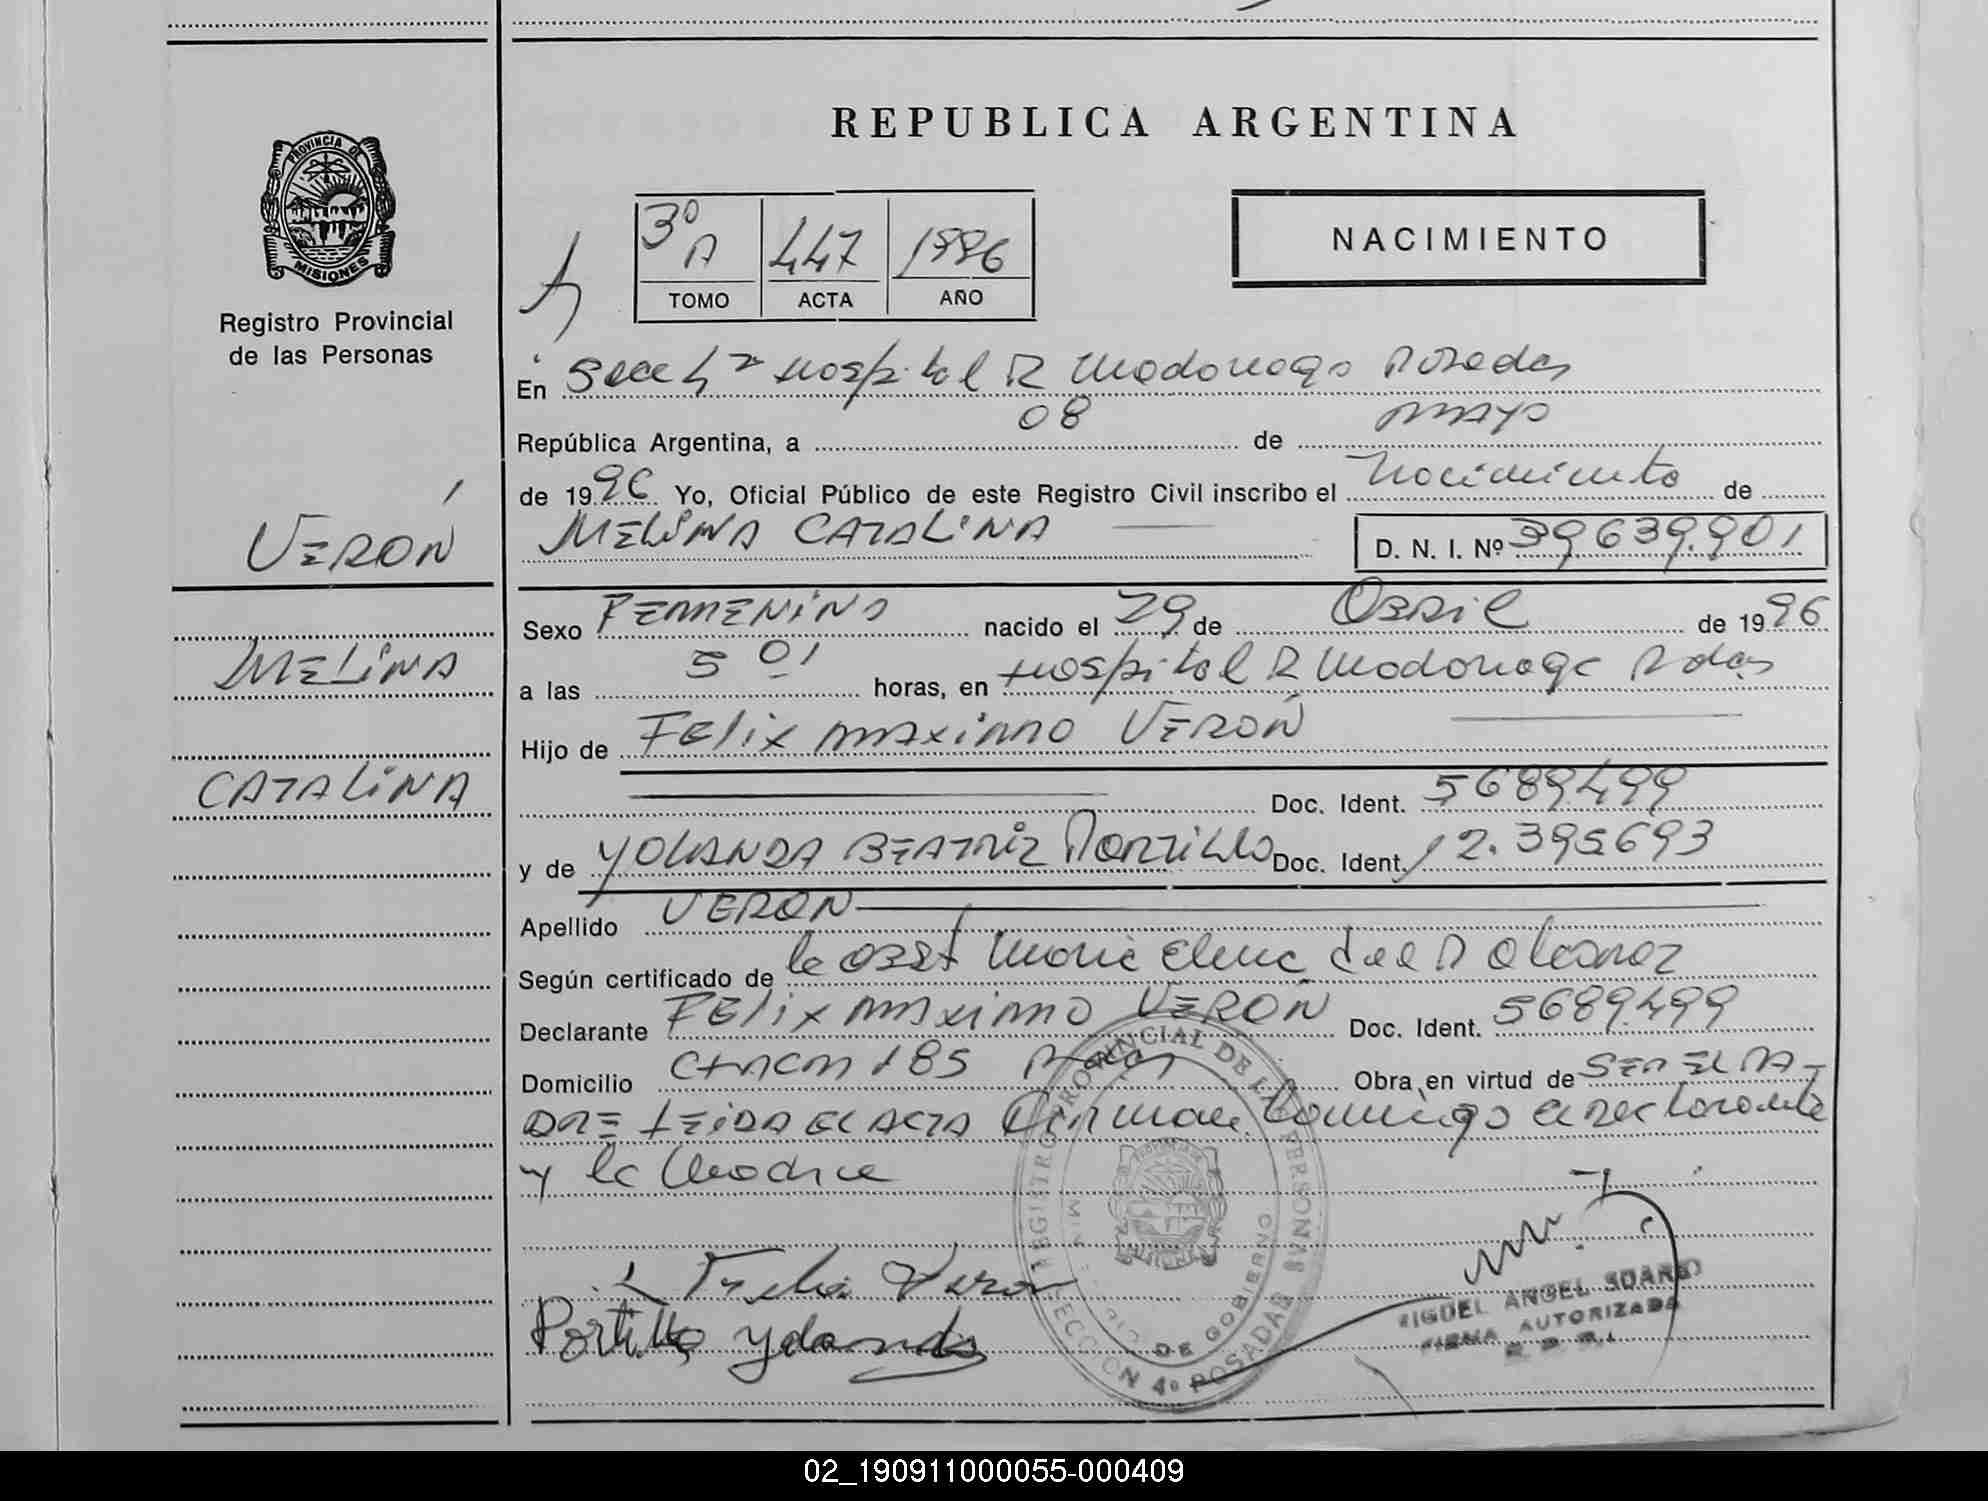 REPUBLICA ARGENTINA
PROVINCIA DE
MISIONES
Registro Provincial
de las Personas
3º A 447 1996
TOMO ACTA AÑO
NACIMIENTO
En Secc 4ª Hospital R Madariaga Posadas
República Argentina, a 08 de mayo
de 1996 Yo, Oficial Público de este Registro Civil inscribo el Nacimiento de
VERÓN
MELINA CATALINA
D. N. I. Nº 39639.901
Sexo FEMENINO nacido el 29 de ABRIL de 1996
MELINA
a las 5 01 horas, en Hospital R Madariaga Pdas
Hijo de Felix Maximo VERÓN
CATALINA
Doc. Ident. 5689499
y de YOLANDA BEATRIZ PORTILLO Doc. Ident. 12.395693
Apellido VERON
Según certificado de la Obst Maria Elena del P
Declarante Felix Maximo VERÓN Doc. Ident. 5689.499
Domicilio 185 Pdas Obra en virtud de SER EL PA-
DRE LEIDA EL ACTA Firman el declarante
y la Madre
REGISTRO PROVINCIAL DE LAS PERSONAS
DE GOBIERNO
SECCION 4º POSADAS
Veron
Portillo Yolanda
MIGUEL ANGEL SUAREZ
FIRMA AUTORIZADA
02_190911000055-000409